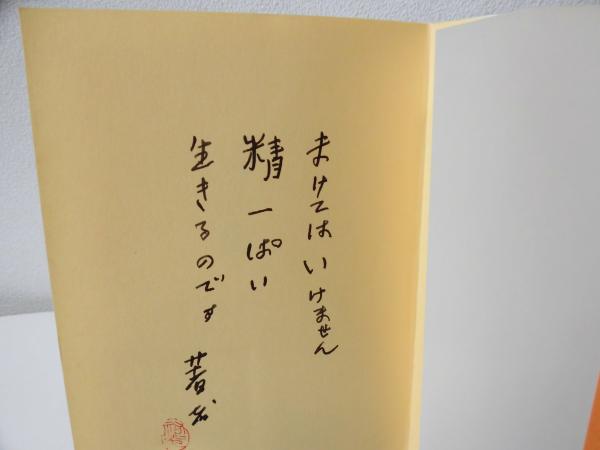 まけてはいけません
精一ぱい
生きるのです 著者